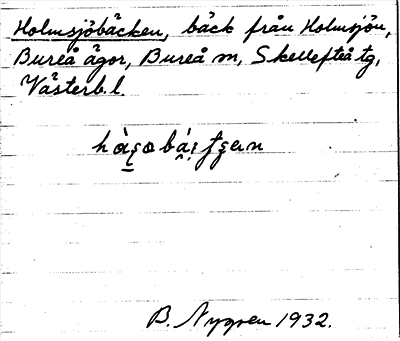 Holmsjöbäcken, bäck från Holmsjön,
Bureå ägor, Bureå sn, Skellefteå tg,
Västerb. l.
B. Nygren 1932.